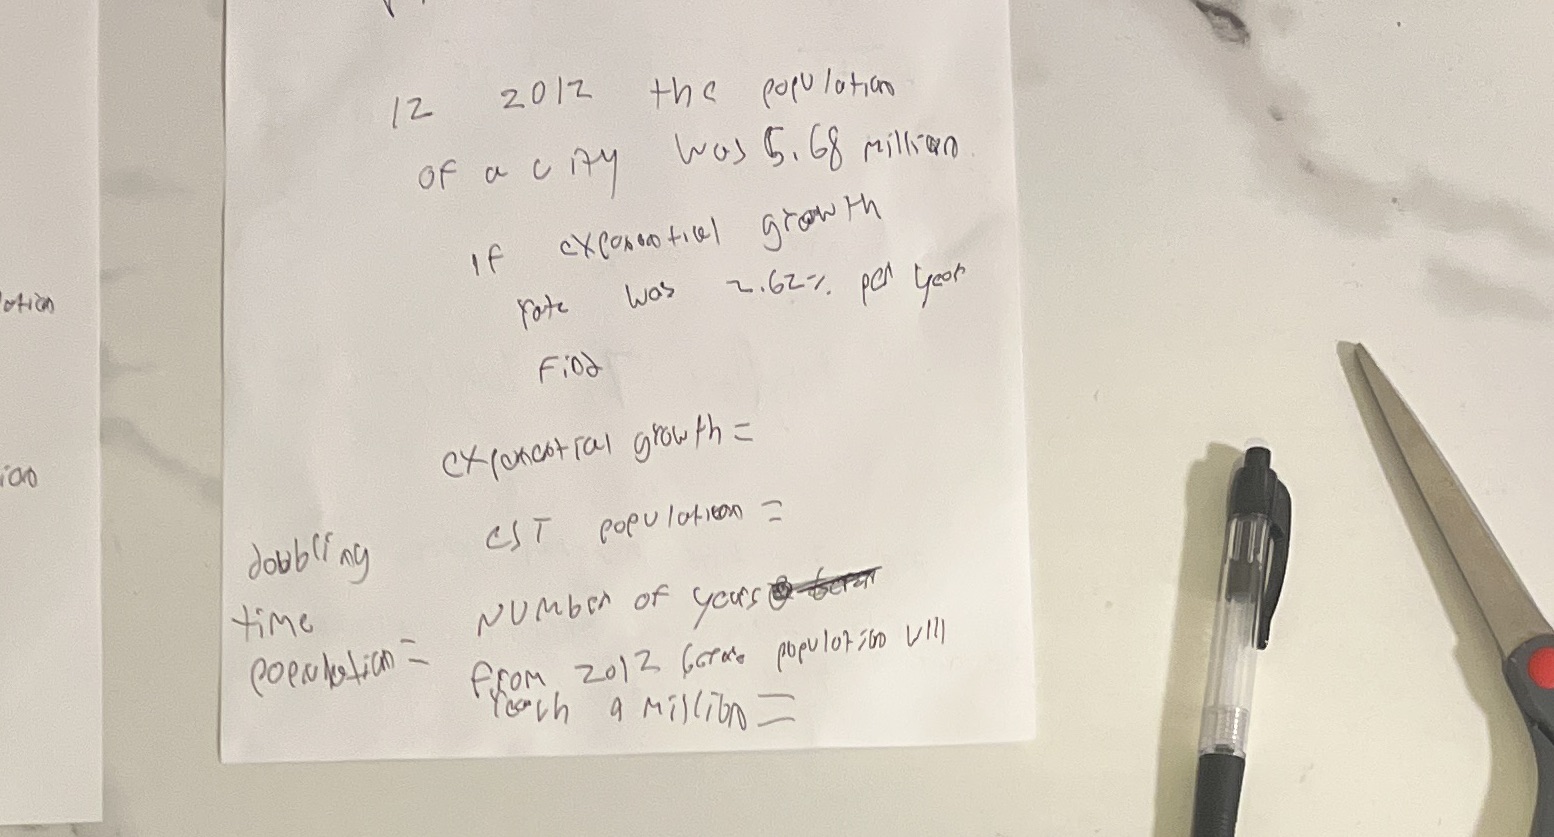 12 2012 the population
of a city was 5.68 million
If exponential growth
rate was 2.62% per year
Find
exponential growth =
EST population =
Number of years
from 2012 before population will
reach 9 million =
doubling
time
population =
otion
ion